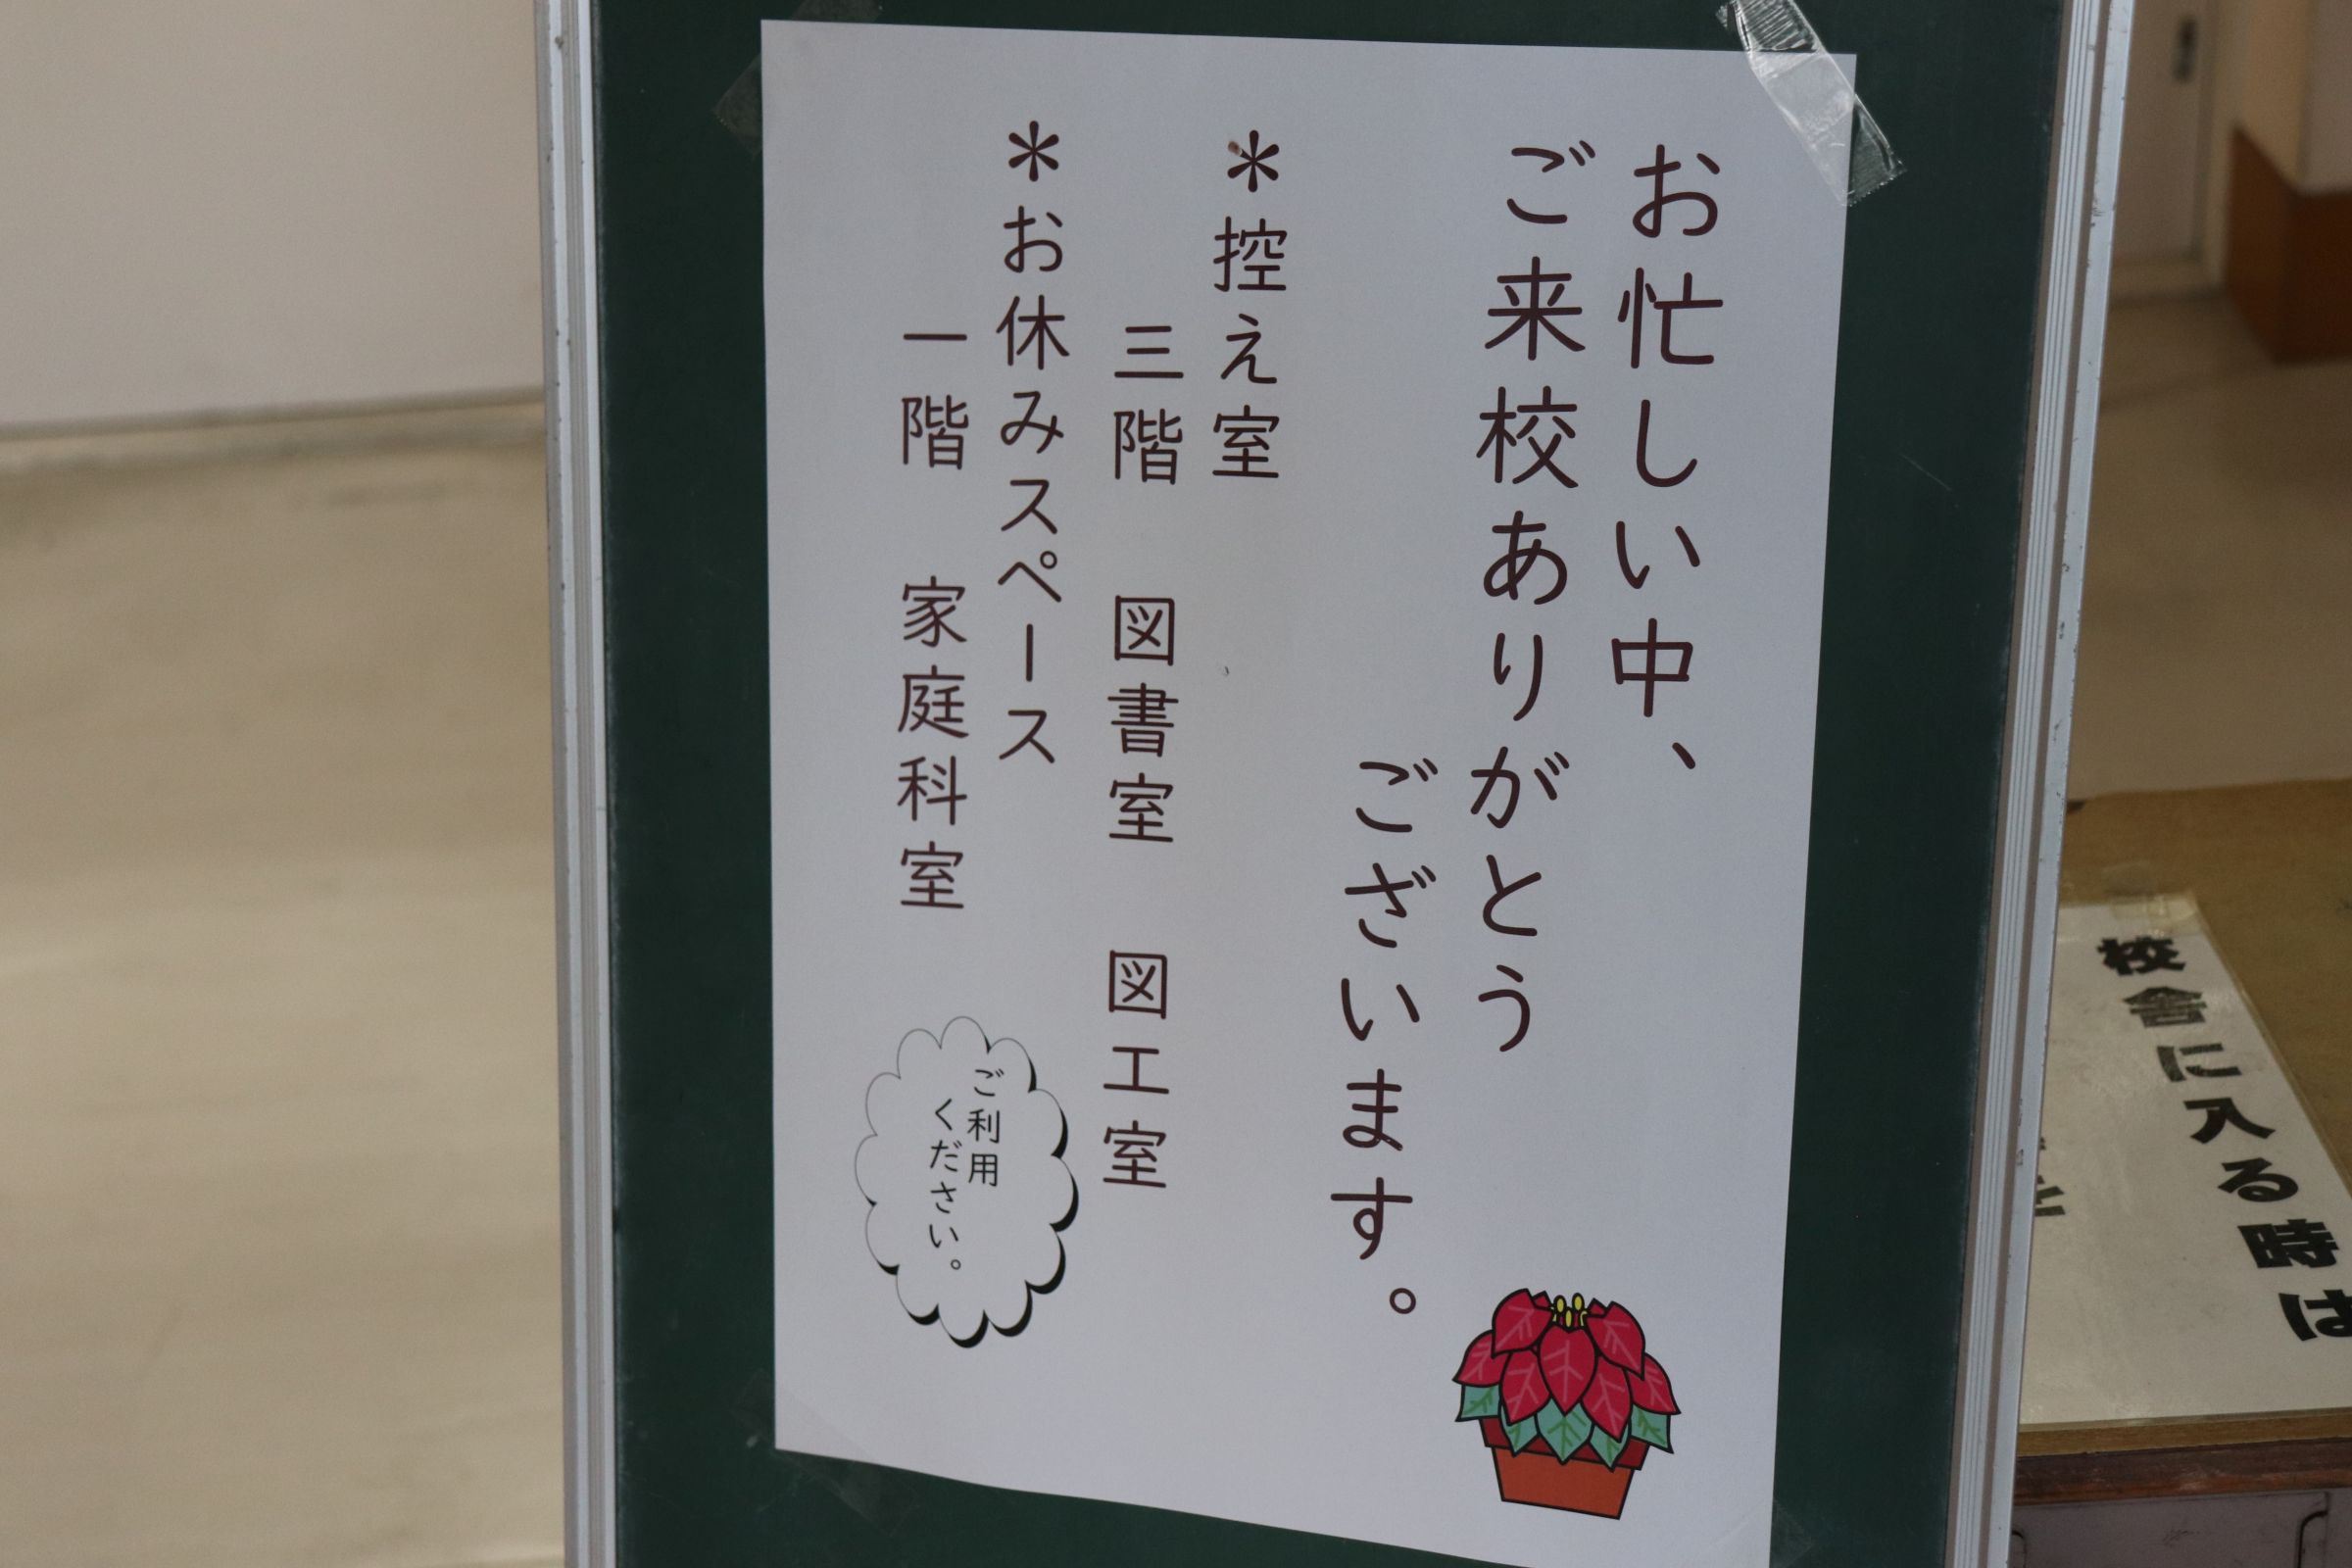 お忙しい中、
ご来校ありがとう
ございます。
＊控え室
三階　図書室　図工室
＊お休みスペース
一階　家庭科室
ご利用
ください。
校舎に入る時は